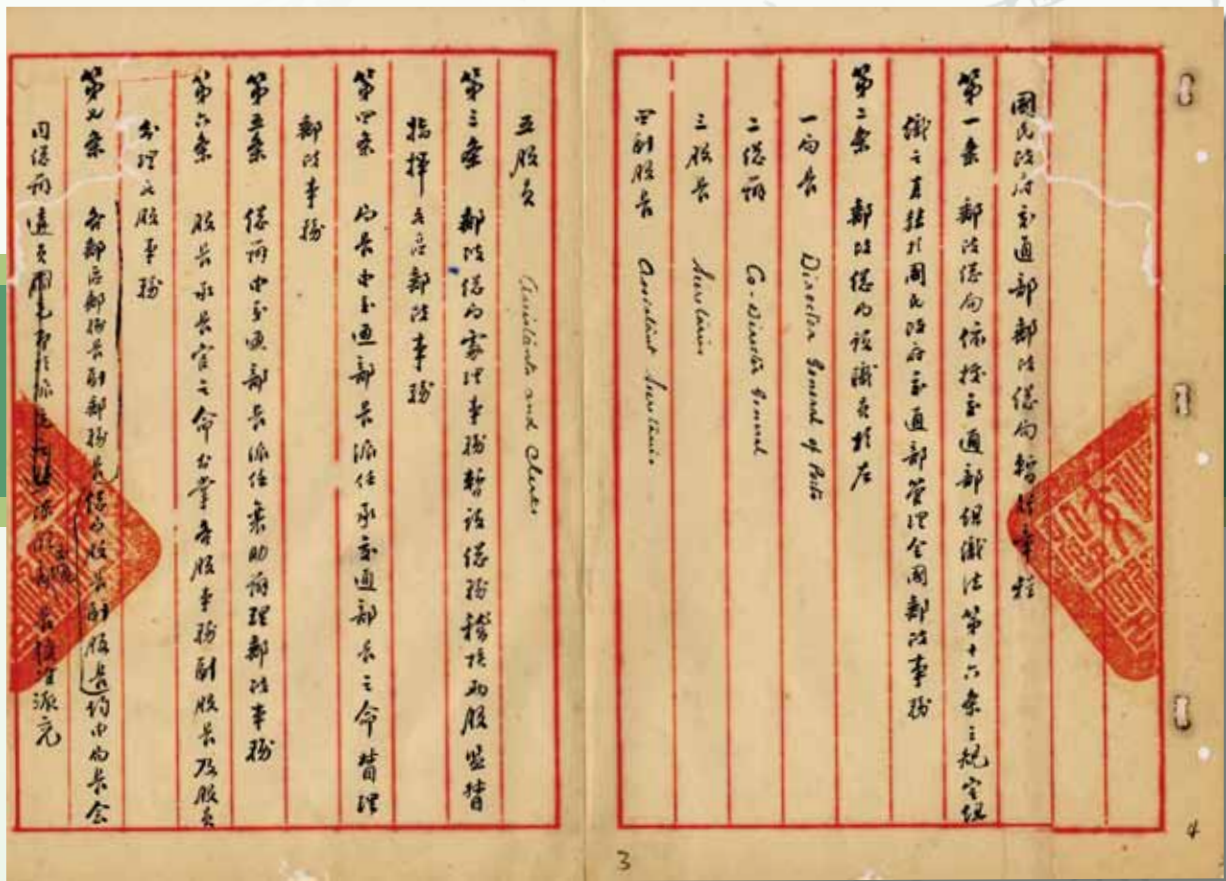 國民政府交通部郵政總局暫行章程
第一条 郵政總局依據交通部組織法第十六条之規定組
織之直隸於國民政府交通部管理全國郵政事務
第二条 郵政總局設職員於左
一局長 Director General of Posts
二總辦 Co-Director General
三股長 Secretaries
四副股長 Assistant Secretaries
五股員 Assistants and Clerks
第三条 郵政總局處理事務暫設總務稽核兩股監督
指揮各區郵政事務
第四条 局長由交通部長派任承交通部長之命督理
郵政事務
第五条 總辦由交通部長派任襄助辦理郵政事務
第六条 股長承長官之命分掌各股事務副股長及股員
分理之股事務
第七条 各郵區郵務長副郵務長總局股長副股長均由局長会
同總辦遴員 長核准派充
3
4